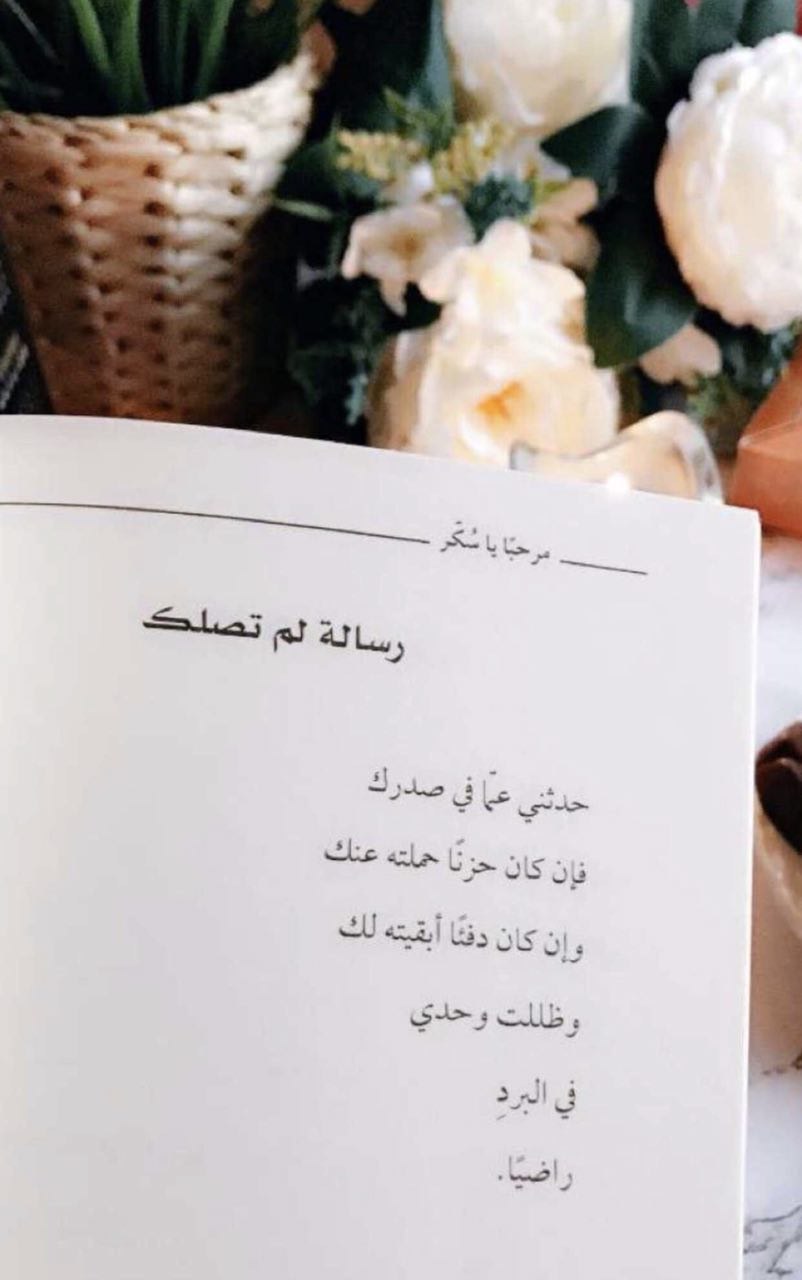 مرحبًا يا سُكّر
رسالة لم تصلك
حدثني عمّا في صدرك
فإن كان حزنًا حملته عنك
وإن كان دفئًا أبقيته لك
وظللت وحدي
في البردِ
راضيًا.